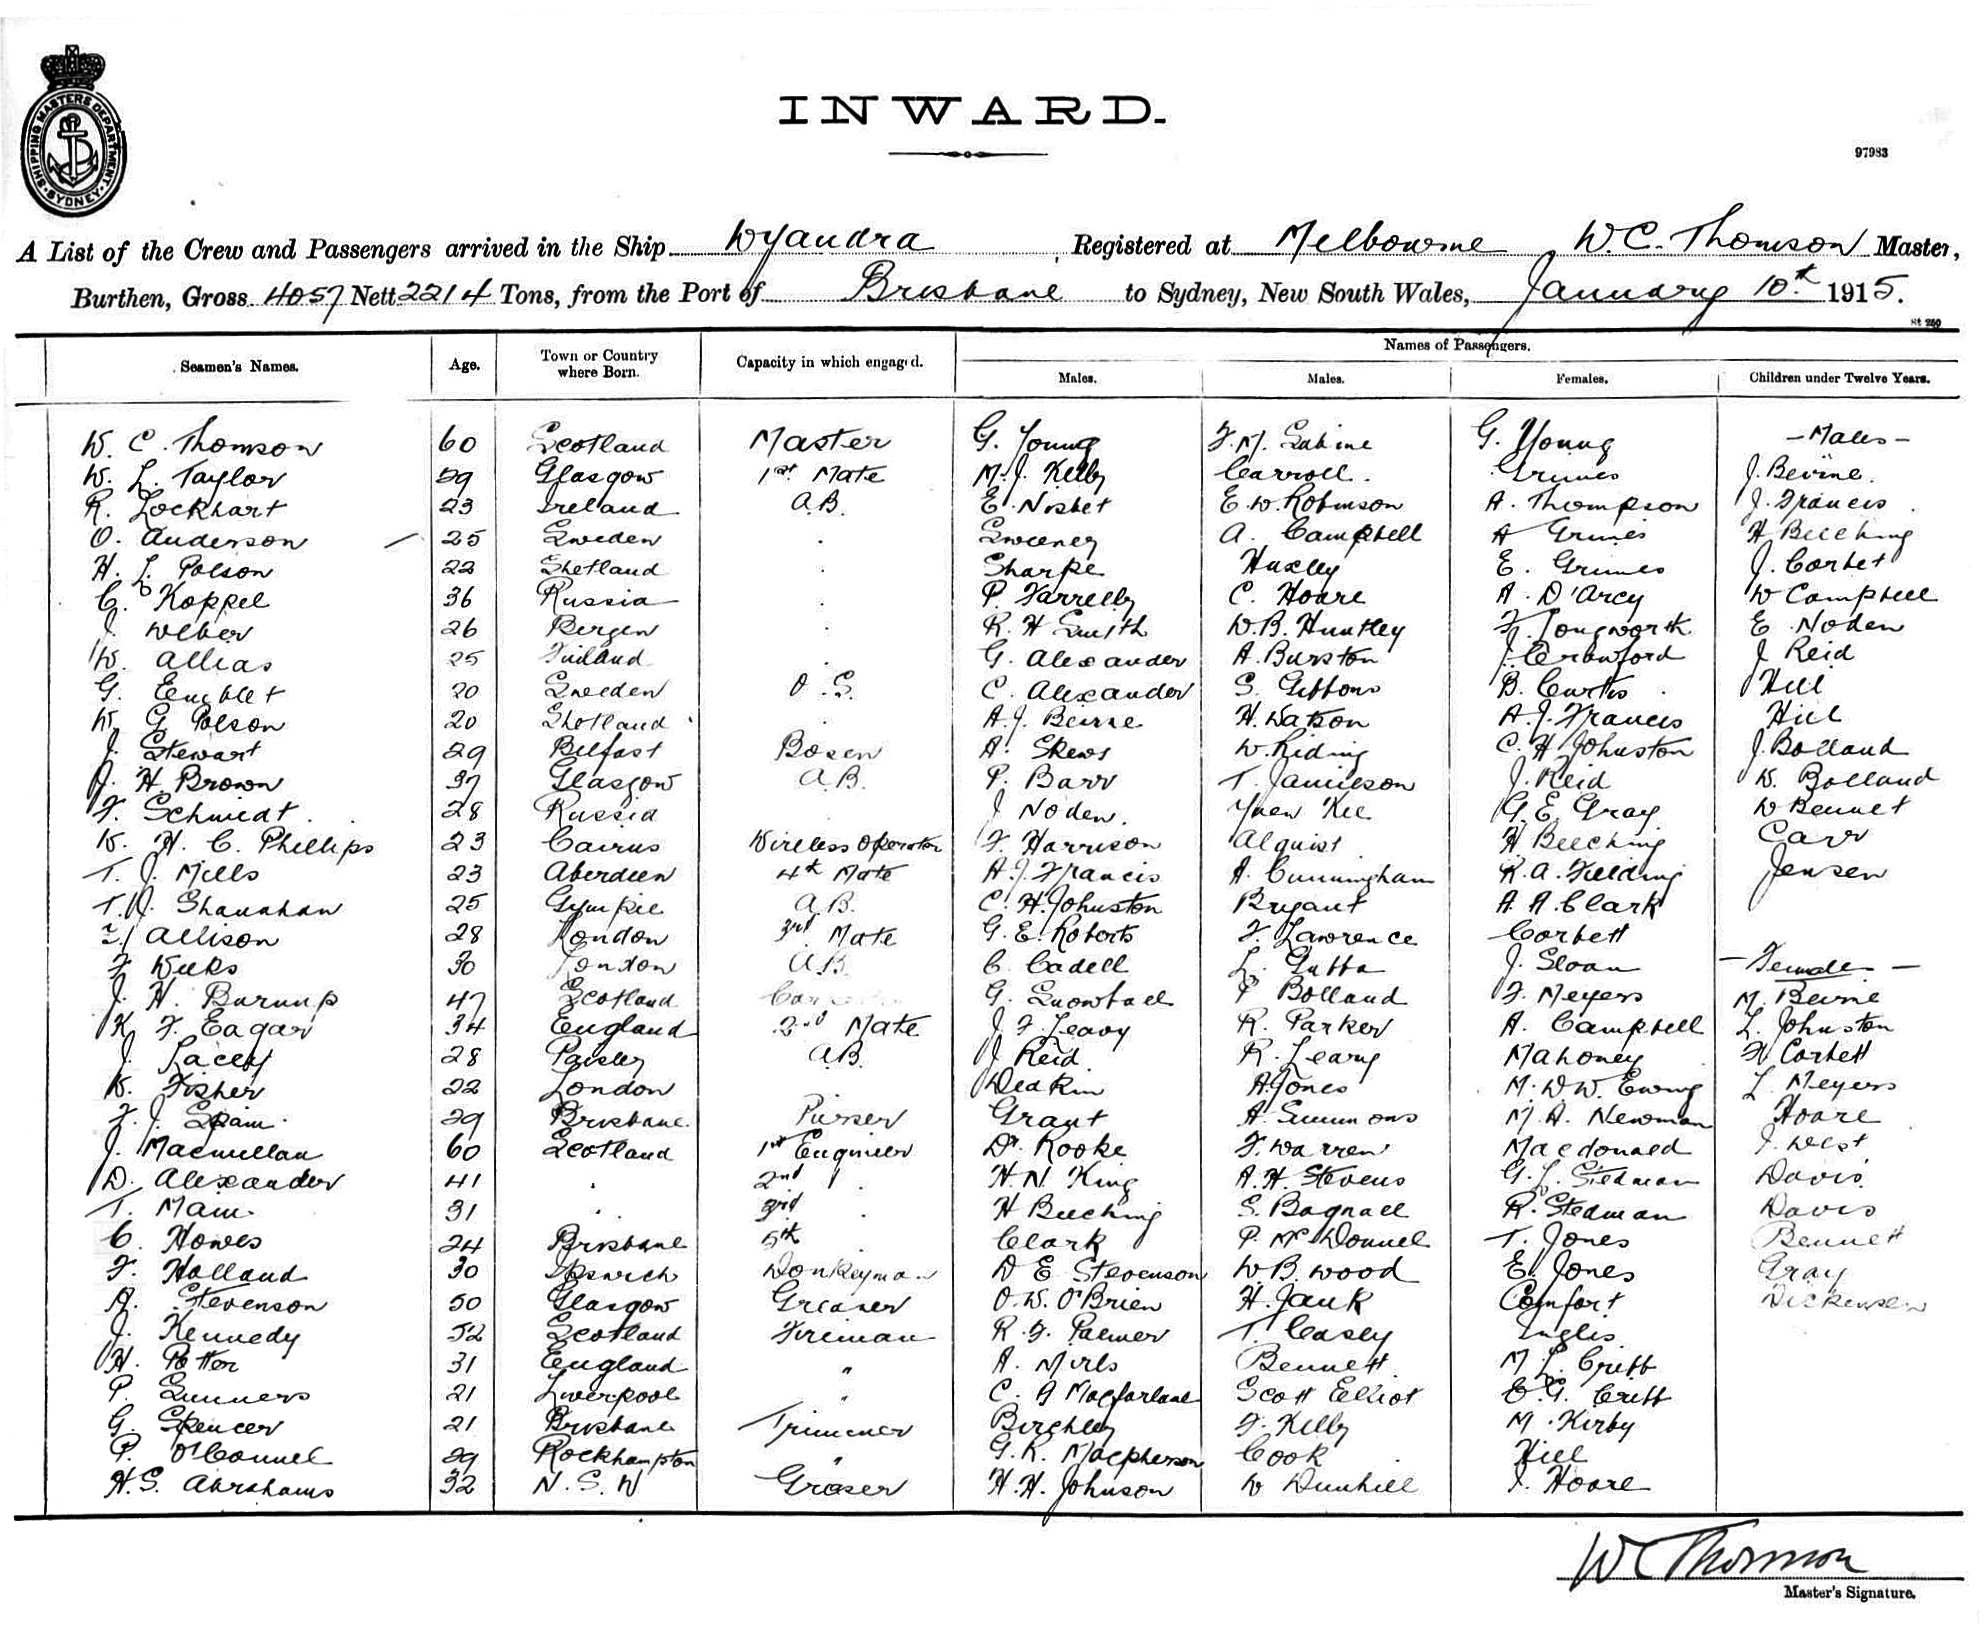 SHIPPING MASTERS DEPARTMENT · SYDNEY ·
INWARD.
97983
A List of the Crew and Passengers arrived in the Ship Wyandra, Registered at Melbourne W. C. Thomson Master,
Burthen, Gross 4057 Nett 2214 Tons, from the Port of Brisbane to Sydney, New South Wales, January 10th 1915.
St 250
Names of Passengers.
Seamen's Names. Age. Town or Country where Born. Capacity in which engaged. Males. Males. Females. Children under Twelve Years.
W. C. Thomson 60 Scotland Master G. Young F. M. Sabine G. Young – Males –
W. L. Taylor 59 Glasgow 1st Mate M. J. Kelly Carroll. Grimes J. Beirne.
R. Lockhart 23 Ireland A.B. E. Nisbet E. W. Robinson A. Thompson J. Francis
O. Anderson 25 Sweden . Sweeney A. Campbell A Grimes H Beeching
H. L. Polson 22 Shetland . Sharpe Huxley E. Grimes J. Corbet
C. Koppel 36 Russia . P. Farrelly C. Hoare A. D'Arcy W Campbell
J. Weber 26 Bergen . R. H Smith W. B. Huntley F. Longworth E. Noden
W. Allias 25 Finland . G. Alexander A. Burston J. Crawford J Reid
G. Emblet 20 Sweden O.S. C. Alexander S. Gibbons B. Curtis Hill
W. G Polson 20 Shetland . A. J. Beirne H. Watson A. J. Francis Hill
J. Stewart 29 Belfast Bosen A. Skews W. Riding C. H Johnston J. Bolland
J. H. Brown 37 Glasgow A.B. P. Barr T. Jamieson J. Reid W. Bolland
F. Schmidt 28 Russia . J Noden. Yuen Kee G. E. Gray W Bennet
W. H. C. Phillips 23 Cairns Wireless Operator F. Harrison Alquist H Beeching Carr
T. J. Mills 23 Aberdeen 4th Mate A. J. Francis A. Cunningham R. A. Fielding Jensen
T. J. Shanahan 25 Gympie A.B. C. H. Johnston Bryant A. A. Clark
Allison 28 London 3rd Mate G. E. Roberts F. Lawrence Corbett
F Weeks 30 London A.B. C. Cadell L. Gubba J. Sloan – Female –
J. H. Burnup 47 Scotland G. Snowball P Bolland F. Meyers M. Beirne
K. F. Eagar 34 England 2nd Mate J. F. Leavy R. Parker A. Campbell L. Johnston
J. Lacey 28 Paisley A.B. J Reid. R. Leary Mahoney H Corbett
W. Fisher 22 London Deakin A. Jones M. D. W. Ewing L Meyers
F. J. Spain. 29 Brisbane. Purser Grant A. Simmons M. A. Newman Hoare
J. Macmillan 60 Scotland 1st Engineer Dr. Rooke F. Warren Macdonald J. West
D. Alexander 41 . 2nd . H. N. King A. H. Stevens G. L. Stedman Davis.
T. Main 31 . 3rd . H Beeching S. Bagnall R. Stedman Davis
C. Howes 24 Brisbane 5th Clark P. McDonnel T. Jones Bennett
F. Holland 30 Ipswich Donkeyman D E Stevenson W B. Wood E. Jones Gray
A. Stevenson 50 Glasgow Greaser O. W. O'Brien H. Jauk Comfort Dickensen
J. Kennedy 52 Scotland Fireman R. F. Palmer T. Casey Inglis
H. Potter 31 England " A. Mirls Bennett M L. Cribb
P. Sumners 21 Liverpool " C. A Macfarlane Scott Elliot E. G. Cribb
G. Spencer 21 Brisbane Trimmer Birchley F. Kelly M. Kirby
P. O'Connel 29 Rockhampton " G. R. Macpherson Cook Hill
H. S. Abrahams 32 N.S.W Greaser H. H. Johnson W Dunhill J. Hoare
W C Thomson
Master's Signature.